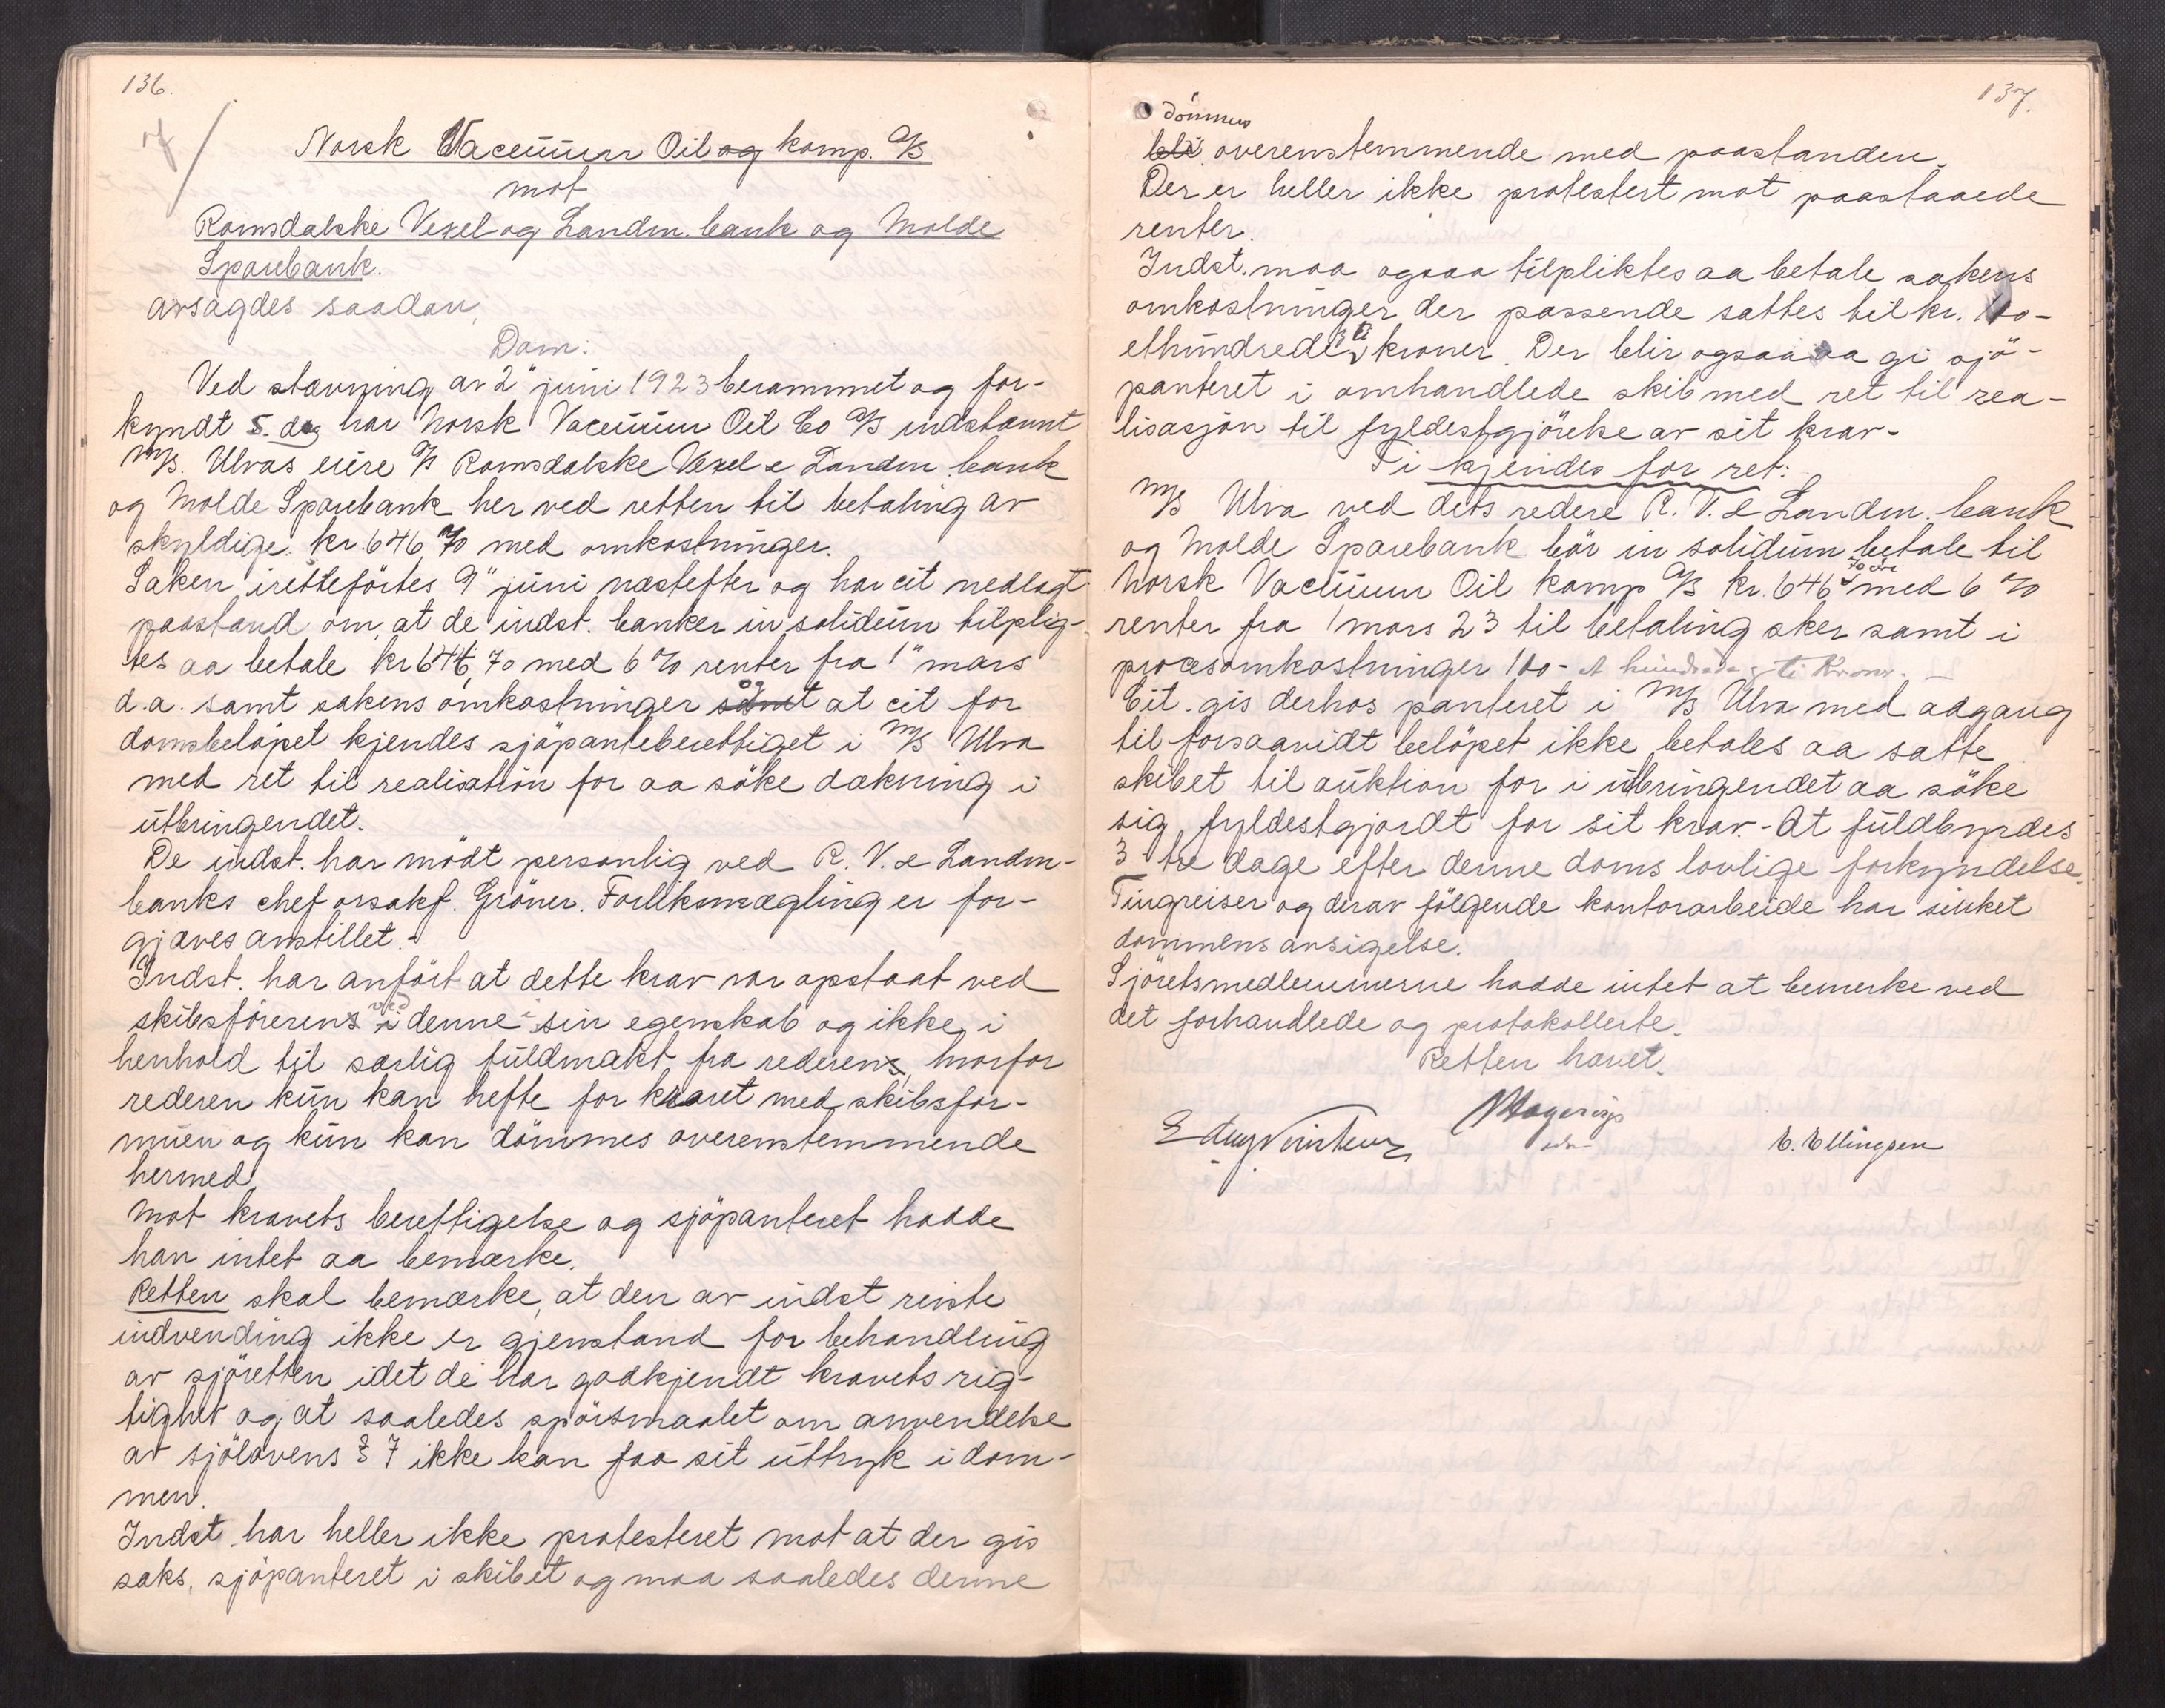 136.
Norsk Vacuum Oil og komp. A/S
mot
Romsdalske Vexel og Landm. bank og Molde
Sparebank.
avsagdes saadan
Dom:
Ved stævning av 2" juni 1923 berammet og for-
kyndt 5. dag har Norsk Vacuum Oil Co A/S indstævnt
M/S. Ulvas eiere A/S Romsdalske Vexel & Landm. bank
og Molde Sparebank her ved retten til betaling av
skyldige kr. 646,70 med omkostninger.
Saken iretteførtes 9" juni næstefter og har cit nedlagt
paastand om, at de indst. banker in solidum tilplig-
tes aa betale kr 646,70 med 6 % renter fra 1" mars
d.a. samt sakens omkostninger samt og at cit for
domsbeløpet kjendes sjøpanteberettiget i M/S Ulva
med ret til realisation for aa søke dækning i
utbringendet.
De indst. har mødt personlig ved R. V. & Landm-
banks chef orsakf. Grøner. Forliksmægling er for-
gjæves anstillet.-
Indst. har anført at dette krav var opstaat ved
skibsførerens i ved denne sin egenskab og ikke i
henhold til særlig fuldmakt fra rederens, hvorfor
rederen kun kan hefte for kravet med skibsfor-
muen og kun kan dømmes overenstemmende
hermed.
Mot kravets berettigelse og sjøpanteret hadde
han intet aa bemærke.
Retten skal bemærke, at den av indst reiste
indvending ikke er gjenstand for behandling
av sjøretten idet de har godkjendt kravets rig-
tighet og at saaledes spørsmaalet om anvendelse
av sjølovens § 7 ikke kan faa sit uttryk i dom-
men.
Indst. har heller ikke protesteret mot at der gis
saks. sjøpanteret i skibet og maa saaledes denne
137.
dømmes
bli overenstemmende med paastanden.
Der er heller ikke protestert mot paastaaede
renter.
Indst. maa ogsaa tilpliktes aa betale sakens
omkostninger der passende sattes til kr. 110-
ethundrede ti kroner. Der blir ogsaa aa gi sjø-
panteret i omhandlede skib med ret til rea-
lisasjon til fyldestgjørelse av sit krav-
Ti kjendes for ret:
M/S Ulva ved dets redere R. V. & Landm. bank
og Molde Sparebank bør in solidum betale til
Norsk Vacuum Oil komp A/S kr. 646 70 øre med 6 %
renter fra 1 mars 23 til betaling sker samt i
procesomkostninger 110- et hundrede og ti Kroner. -
Cit. gis derhos panteret i M/S Ulva med adgang
til forsaavidt beløpet ikke betales aa sætte
skibet til auktion for i utbringendet aa søke
sig fyldestgjordt for sit krav.- At fuldbyrdes
3 tre dage efter denne doms lovlige forkyndelse.
Tingreiser og derav følgende kontorarbeide har sinket
dommens avsigelse.
Sjøretsmedlemmerne hadde intet at bemerke ved
det forhandlede og protokollerte.
Retten hævet.
E. Ellingsen